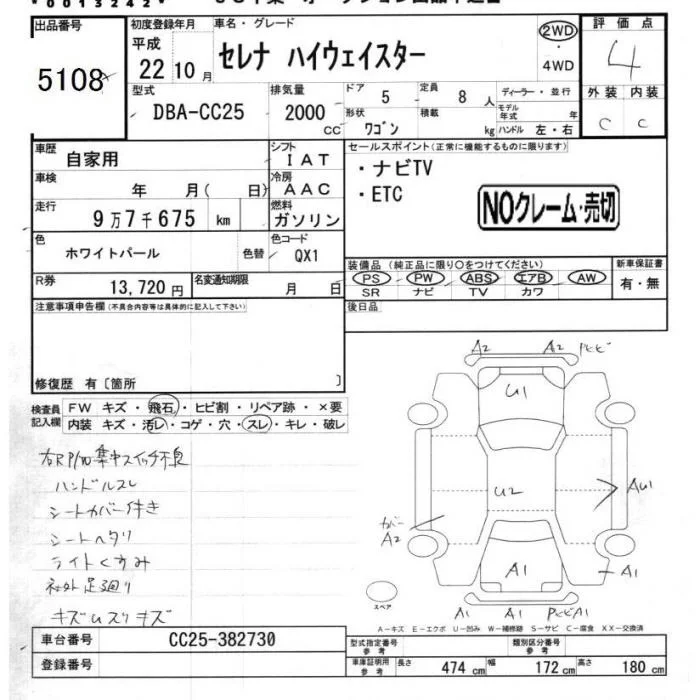 出品番号
5108
初度登録年月
平成
22 10月
車名・グレード
セレナ ハイウェイスター
2WD
・
4WD
評価点
4
外装 内装
C C
型式
DBA-CC25
排気量
2000
CC
ドア
5
定員
8 人
形状
ワゴン
積載
kg
ディーラー・並行
モデル
年式 年
ハンドル 左・右
車歴 自家用
シフト
IAT
車検
年 月( 日)
冷房
AAC
走行
9万7千675 km
燃料
ガソリン
色
ホワイトパール
色替
色コード
QX1
R券
13,720円
名変通知期限
月 日
セールスポイント(正常に機能するものに限ります)
・ナビTV
・ETC
NOクレーム・売切
装備品(純正品に限り○をつけてください)
PS ・ PW ・ ABS ・ エアB ・ AW
SR ナビ TV カワ
新車保証書
有・無
後日品
注意事項申告欄(不具合内容等は具体的に記入して下さい)
修復歴 有〔箇所 〕
検査員
記入欄
FW キズ・飛石・ヒビ割・リペア跡・×要
内装 キズ・汚レ・コゲ・穴・スレ・キレ・破レ
右R P/W 集中スイッチ不良
ハンドルスレ
シートカバー付き
シートヘタリ
ライトくすみ
社外足廻り
キズ
キズ
A2 A2
U1
U2
AU1
カバー
A2
A1
A1
スペア
A1 A1 A1
A－キズ E－エクボ U－凹み W－補修跡 S－サビ C－腐食 XX－交換済
車台番号 CC25-382730
登録番号
型式指定番号
参考
類別区分番号
参考
車庫証明用
参考
長さ 474 cm 幅 172 cm 高さ 180 cm